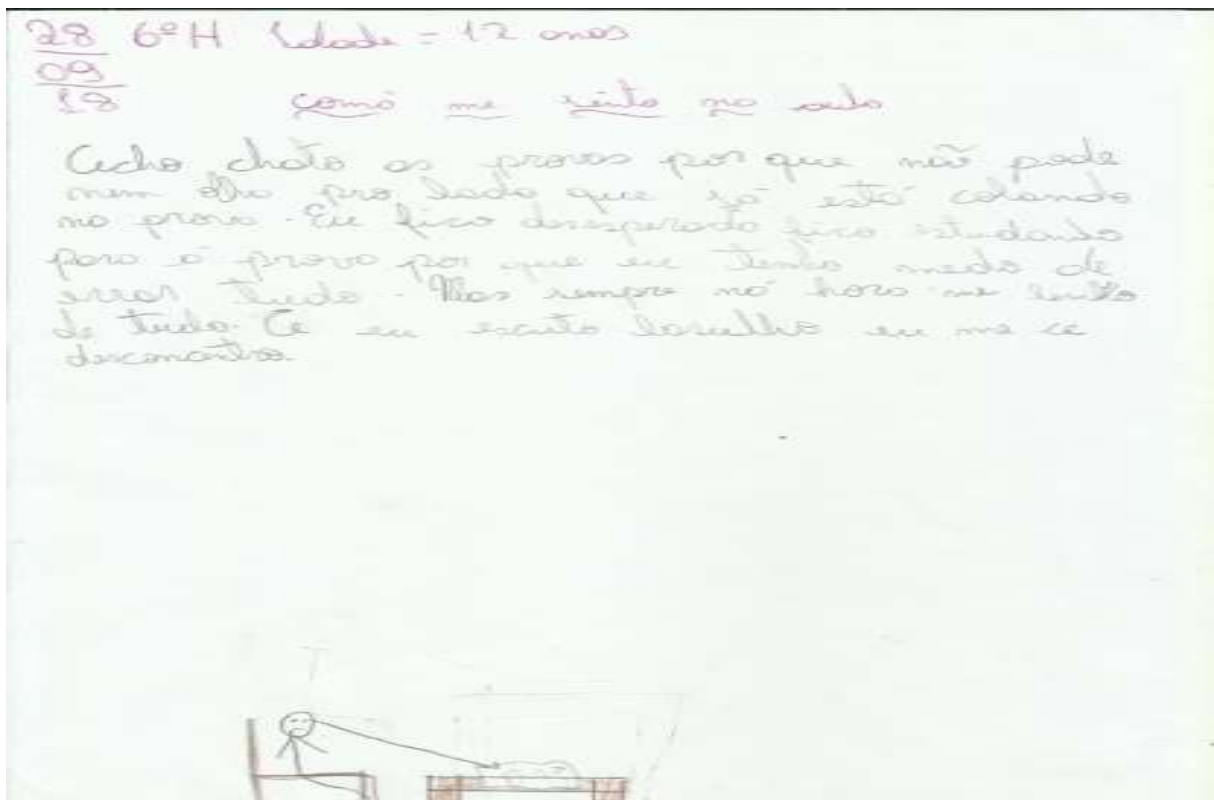 28 6º H Idade = 12 anos
09
18 como me sinto na aula
Acho chato as provas por que não pode
nem olha pro lado que já está colando
na prova. Eu fico desesperado fico estudando
para a prova por que eu tenho medo de
errar tudo. Mas sempre na hora me
de tudo. Ce eu escuto barulho eu me ce
desconcentro.